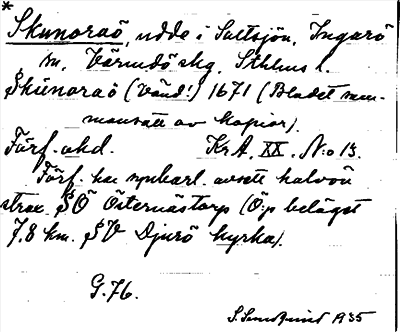 * Skunoraö, udde i Saltsjön, Ingarö
sn, Värmdö shg. Sthlms l.
Skunoraö (Vänd!) 1671 (Bladet sam-
mansatt av kopior).
Förf. okd. Kr.A. XX. No 13.
Förf. har uppenbarl. avsett halvön
strax SÖ Östernästorp (Öp beläget
7,8 km. SV Djurö kyrka).
G.76.
1935